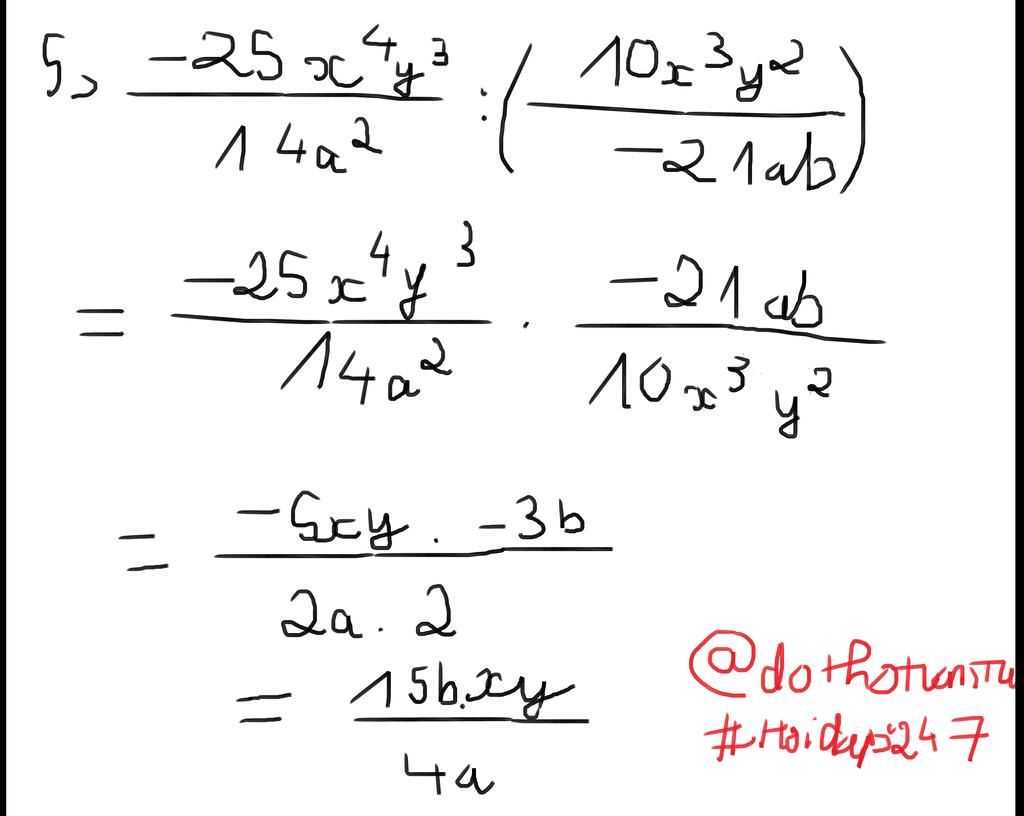 5, \frac{-25x^4y^3}{14a^2} : \left(\frac{10x^3y^2}{-21ab}\right)
= \frac{-25x^4y^3}{14a^2} . \frac{-21ab}{10x^3y^2}
= \frac{-5xy . -3b}{2a . 2}
= \frac{15b.xy}{4a}
#Hoidap247